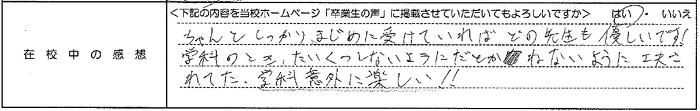 <下記の内容を当校ホームページ「卒業生の声」に掲載させていただいてもよろしいですか> はい・いいえ
在校中の感想
ちゃんとしっかりまじめに受けていればどの先生も優しいです!
学科のとき、たいくつしないようにだとかねないように工夫さ
れてた、学科意外に楽しい!!